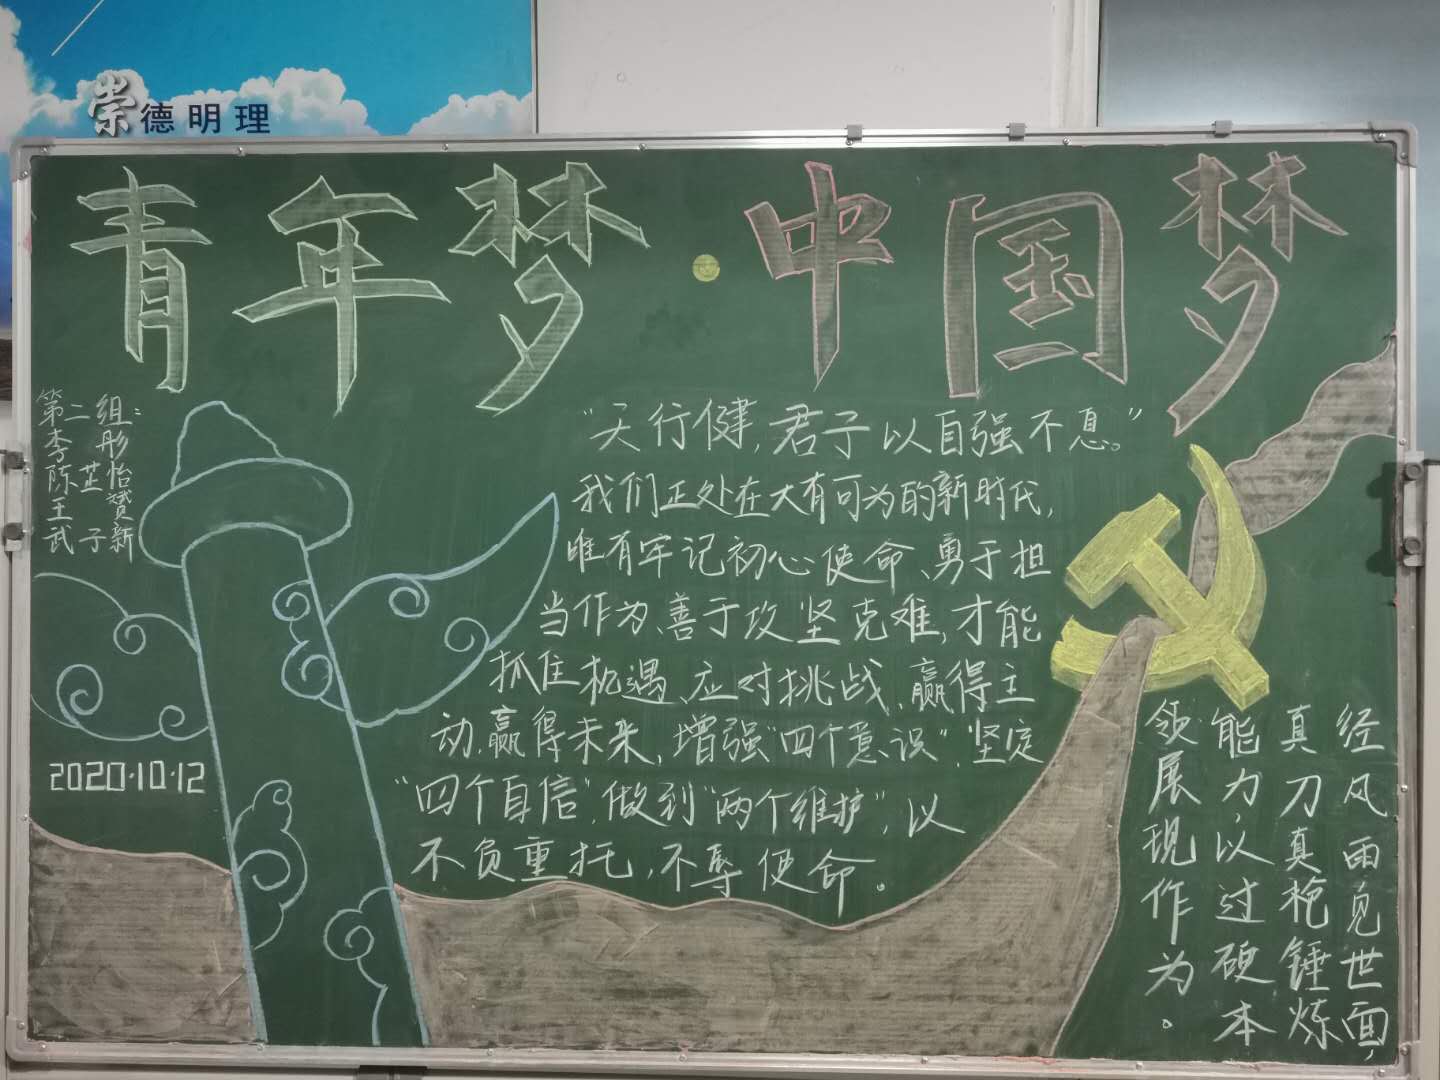 崇德明理
青年梦·中国梦
第二组:
李彤
陈芷怡
王赟
武子新
“天行健,君子以自强不息。”
我们正处在大有可为的新时代,
唯有牢记初心使命、勇于担
当作为、善于攻坚克难,才能
抓住机遇、应对挑战、赢得主
动、赢得未来,增强“四个意识”、坚定
“四个自信”,做到“两个维护”,以
不负重托,不辱使命。
2020·10·12
经风雨见世面,
真刀真枪锤炼
能力,以过硬本
领展现作为。